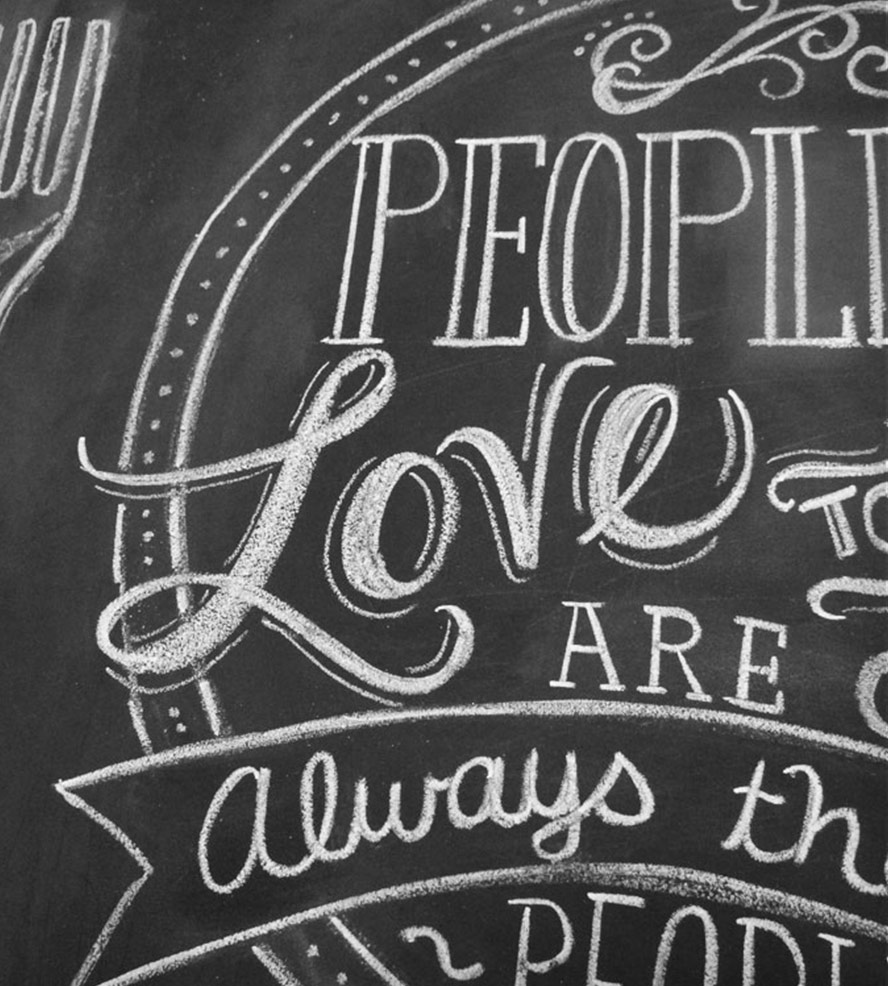 PEOPL
Love TO
ARE
always th
PEOPL